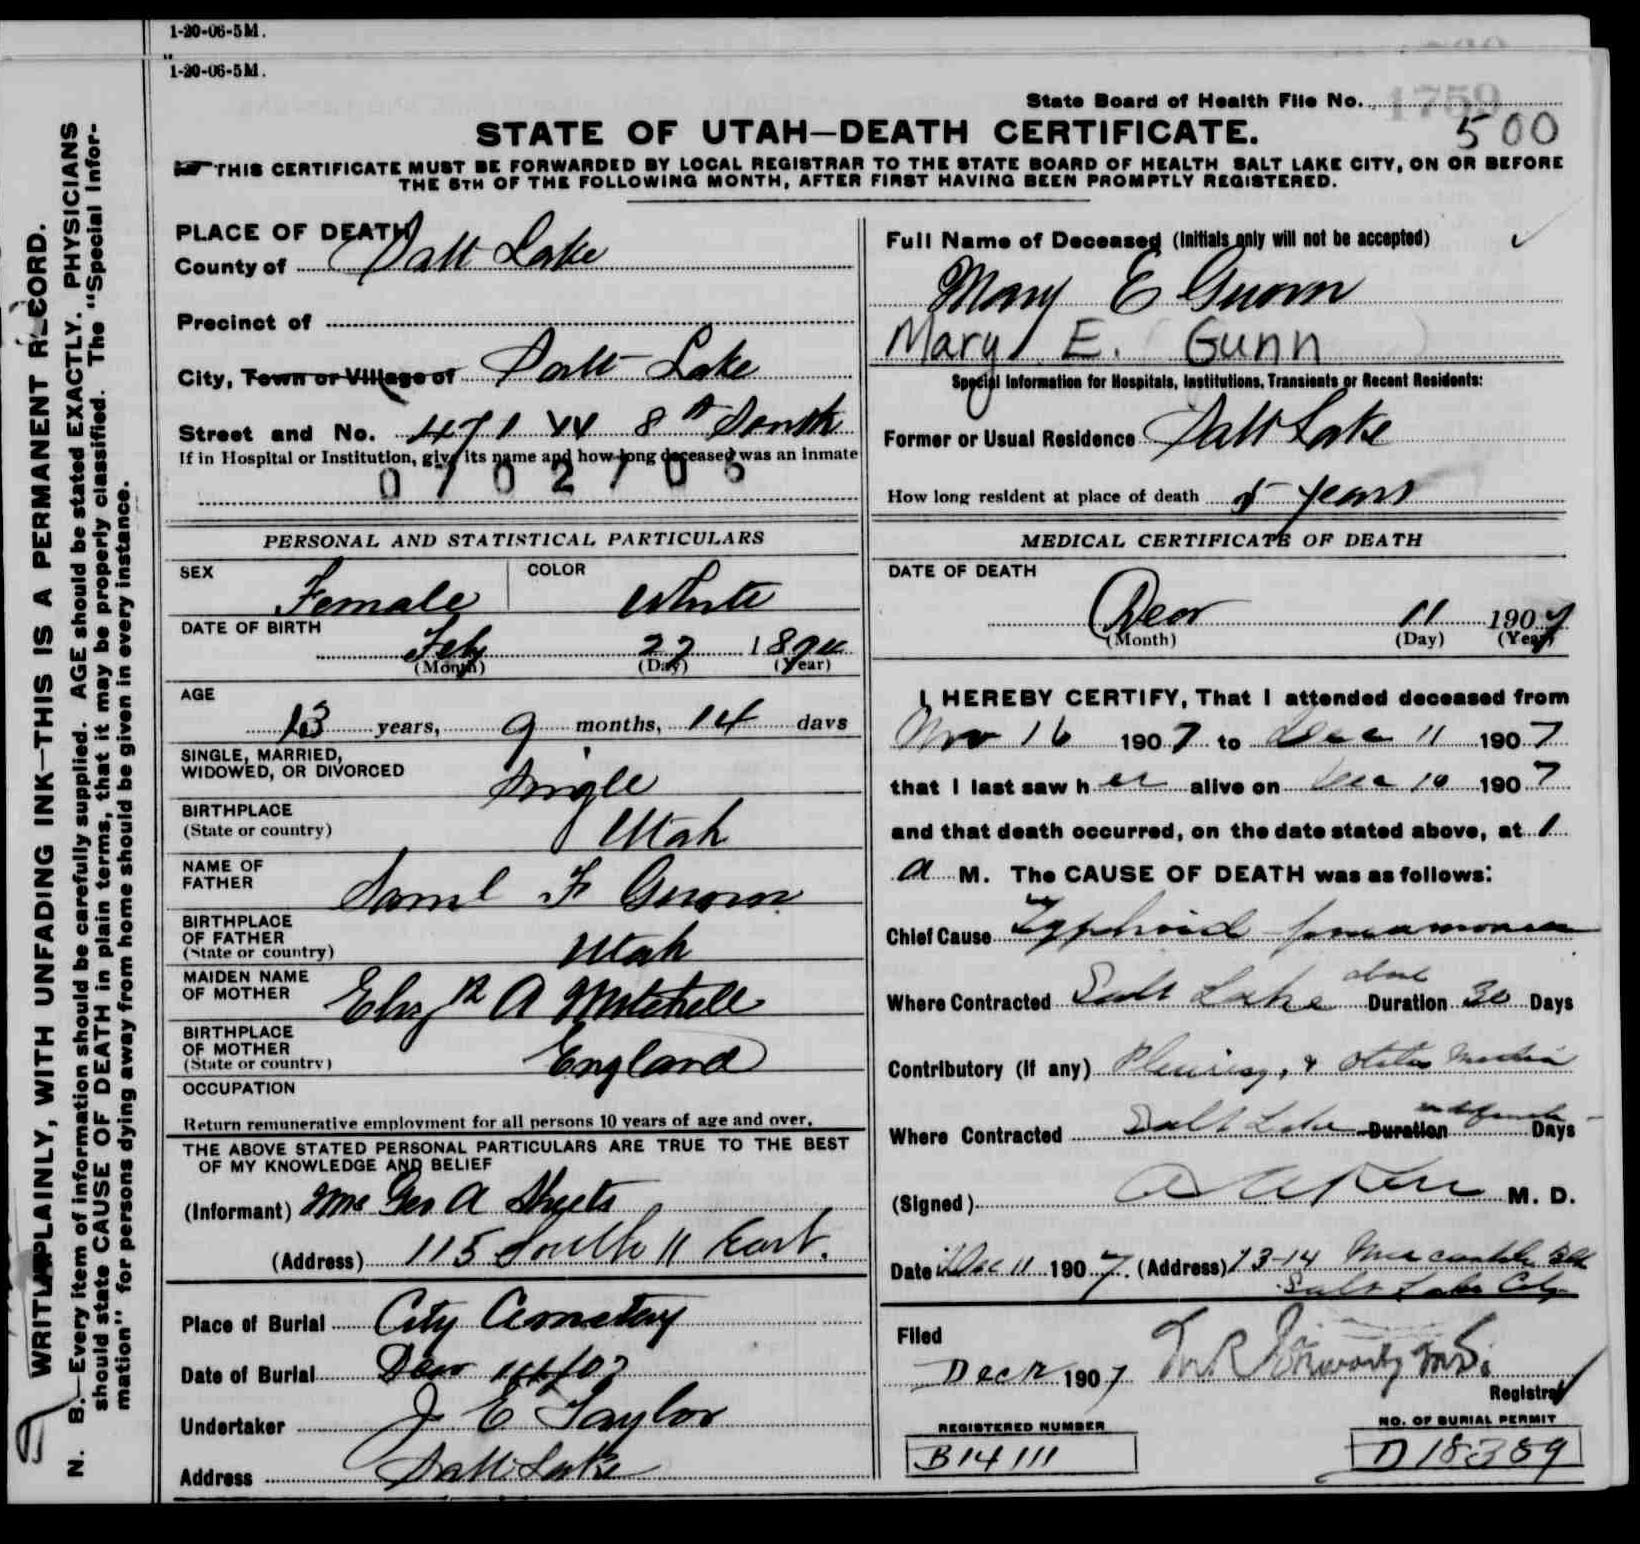 1-20-06-5M.
1-20-06-5M.
WRITE PLAINLY, WITH UNFADING INK—THIS IS A PERMANENT RECORD.
N. B.—Every item of information should be carefully supplied. AGE should be stated EXACTLY. PHYSICIANS
should state CAUSE OF DEATH in plain terms, that it may be properly classified. The "Special Infor-
mation" for persons dying away from home should be given in every instance.
State Board of Health File No. 1759
500
STATE OF UTAH—DEATH CERTIFICATE.
THIS CERTIFICATE MUST BE FORWARDED BY LOCAL REGISTRAR TO THE STATE BOARD OF HEALTH SALT LAKE CITY, ON OR BEFORE
THE 5TH OF THE FOLLOWING MONTH, AFTER FIRST HAVING BEEN PROMPTLY REGISTERED.
PLACE OF DEATH
County of Salt Lake
Precinct of
City, Town or Village of Salt Lake
Street and No. 471 W 8th South
If in Hospital or Institution, give its name and how long deceased was an inmate
0702706
PERSONAL AND STATISTICAL PARTICULARS
SEX Female COLOR White
DATE OF BIRTH
Feb 27 1894
(Month) (Day) (Year)
AGE
13 years, 9 months, 14 days
SINGLE, MARRIED,
WIDOWED, OR DIVORCED Single
BIRTHPLACE
(State or country) Utah
NAME OF
FATHER Saml F Gunn
BIRTHPLACE
OF FATHER
(State or country) Utah
MAIDEN NAME
OF MOTHER Elizth A Mitchell
BIRTHPLACE
OF MOTHER
(State or country) England
OCCUPATION
Return remunerative employment for all persons 10 years of age and over.
THE ABOVE STATED PERSONAL PARTICULARS ARE TRUE TO THE BEST
OF MY KNOWLEDGE AND BELIEF
(Informant) Mrs Geo A Sheets
(Address) 115 South 11 East.
Place of Burial City Cemetery
Date of Burial Dec
Undertaker J E Taylor
Address Salt Lake
Full Name of Deceased (Initials only will not be accepted)
Mary E Gunn
Mary E. Gunn
Special Information for Hospitals, Institutions, Transients or Recent Residents:
Former or Usual Residence Salt Lake
How long resident at place of death 5 years
MEDICAL CERTIFICATE OF DEATH
DATE OF DEATH
Dec 11 1907
(Month) (Day) (Year)
I HEREBY CERTIFY, That I attended deceased from
Nov 16 1907 to Dec 11 1907
that I last saw her alive on Dec 10 1907
and that death occurred, on the date stated above, at 1
a M. The CAUSE OF DEATH was as follows:
Chief Cause Typhoid pneumonia
Where Contracted Salt Lake about Duration 30 Days
Contributory (if any) Pleurisy, & Otitis Media
Where Contracted Salt Lake Duration indefinite Days
(Signed) M. D.
Date Dec 11 1907. (Address) 13-14 Mercantile Blk
Salt Lake City
Filed
Dec 12 1907
Registrar
REGISTERED NUMBER
B14111
NO. OF BURIAL PERMIT
D18389